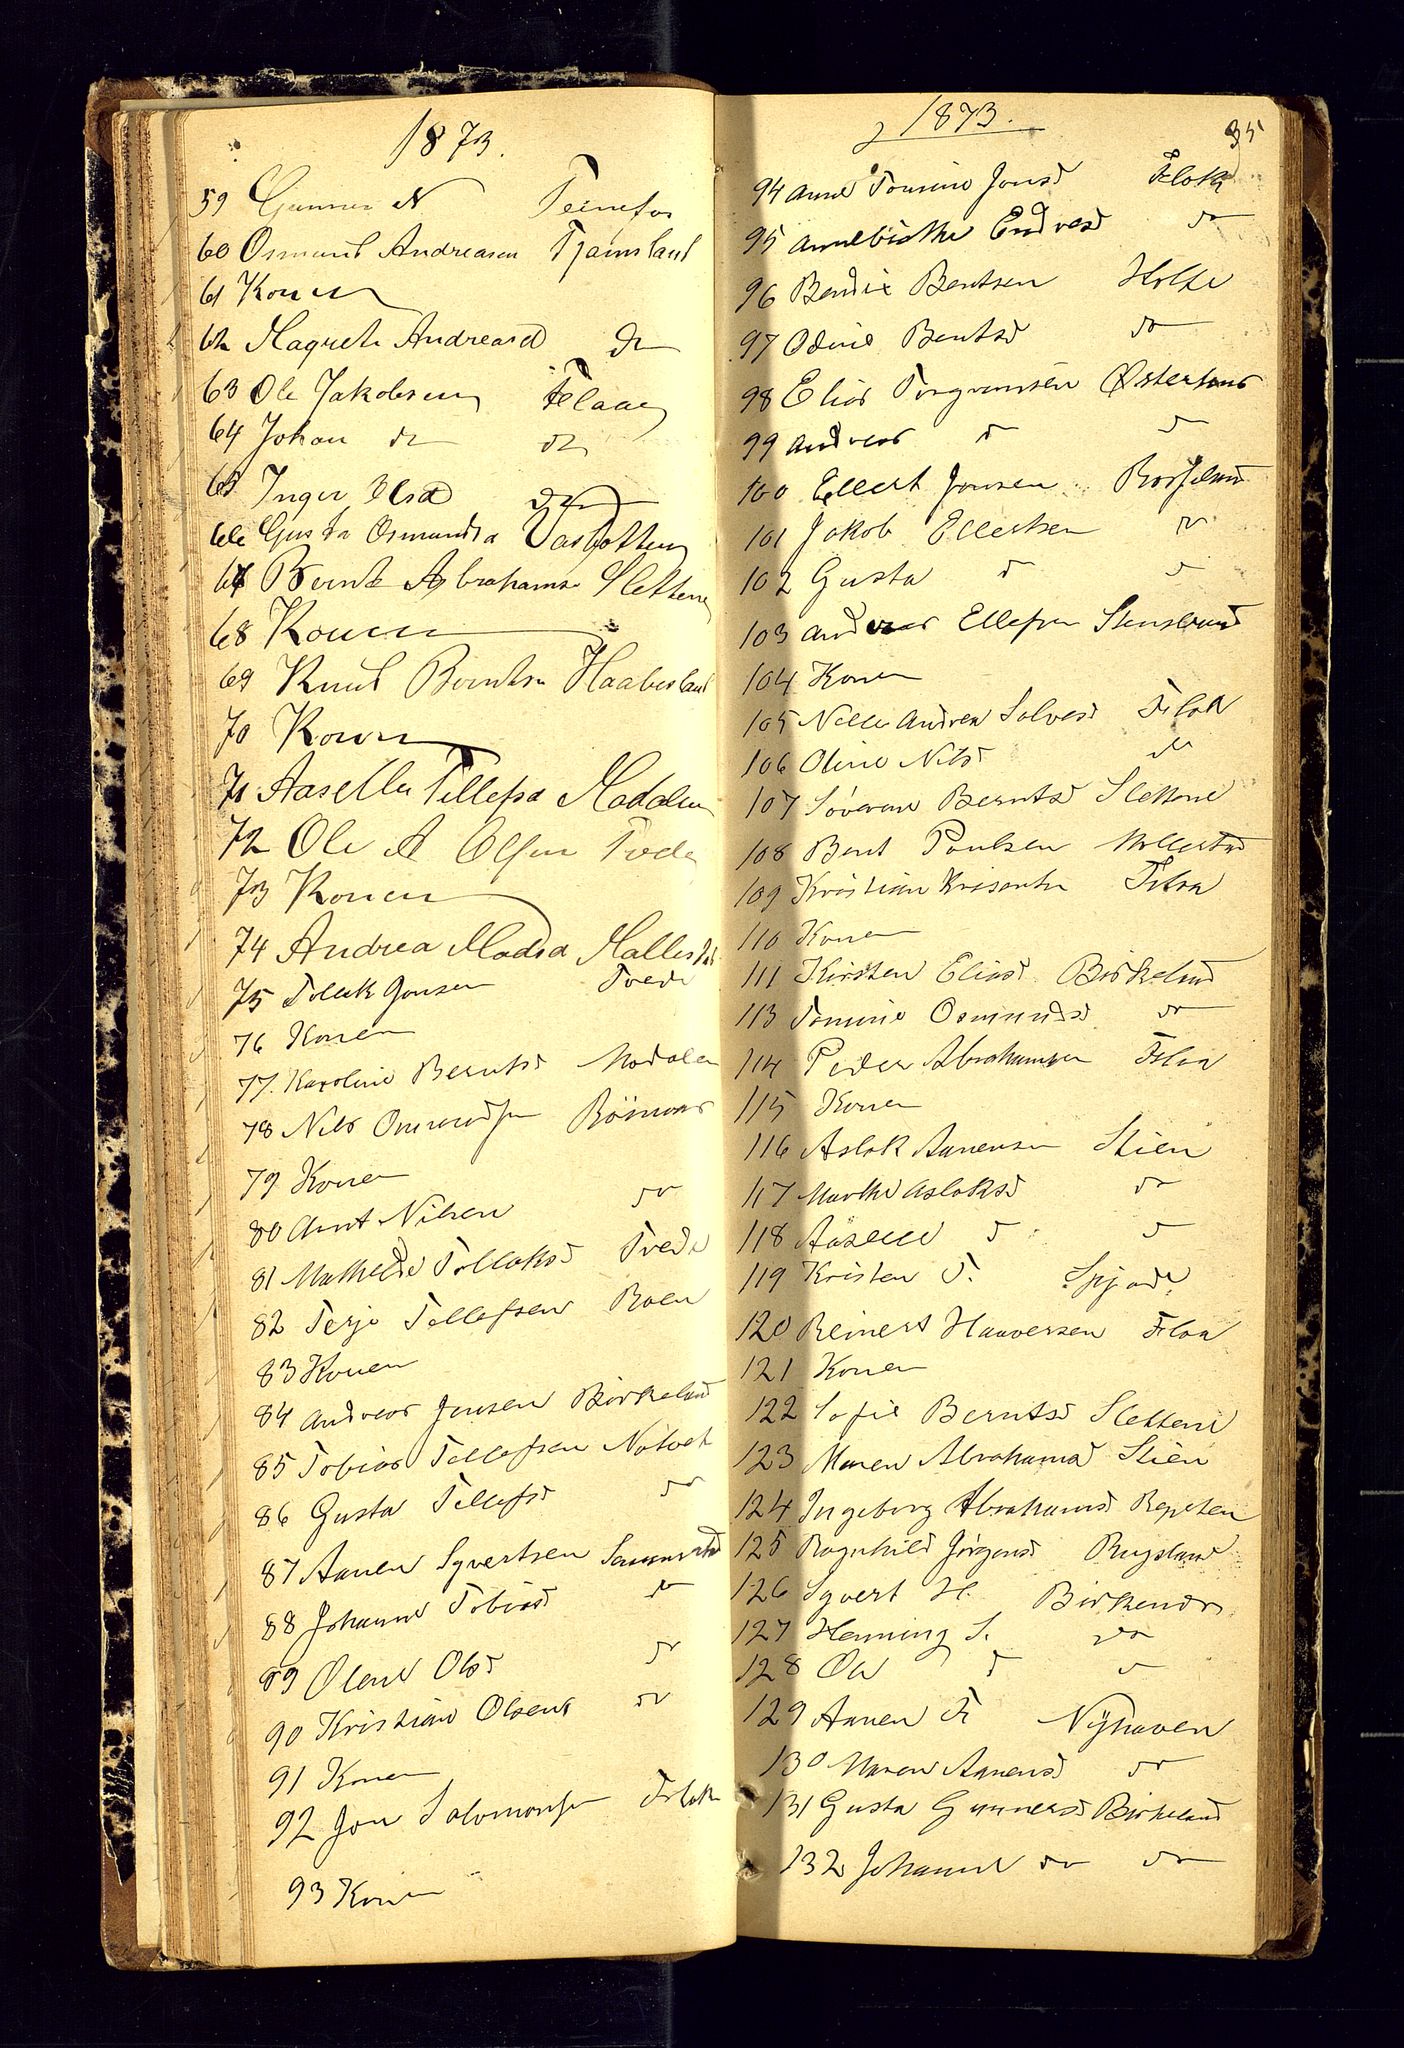 1873.
59 Gunner N Teinefos
60 Osmund Andreasen Tjomsland
61 Konen
62 Magrete Andreasd do
63 Ole Jakobsen Flaae
64 Johan do do
65 Inger Olsd do
66 Gusta Osmundsd Vasbotten
67 Bernt Abrahams Slettene
68 Konen
69 Knud Berntsn Haabesland
70 Konen
71 Aaselle Tellefsd Modalen
72 Ole A Olsen Tvede
73 Konen
74 Andrea Madsd Mollestad
75 Tollak Jonsen Tvede
76 Konen
77. Karoline Berntsd Modalen
78 Nils Omundsen
79 Konen
80 Arnt Nilsen do
81 Mathilde Tollaksd Tvede
82 Terje Tellefsen Boen
83 Konen
84 Andreas Jensen Birkeland
85 Tobias Tellefsen
86 Gusta Tellefsd do
87 Aanen Syvertsen
88 Johanne Tobiasd do
89 Olene Olsd do
90 Kristian Olsens do
91 Konen
92 Jon Salomonsen Flak
93 Konen
1873.
35
94 Anne Tomine Jonsd Flak
95 Annebirthe Endresd do
96 Bendix Bentsen Holte
97 Odine Bentsd do
98 Elias Torgrimsen Østerhus
99 Andreas d d
100 Ellert Jonsen
101 Jakob Ellertsen do
102 Gusta d d
103 Andreas Ellefsen Stensland
104 Konen
105 Nelle Andrea Salvesd Flaa
106 Oline Nilsd do
107 Søverine Berntsd Slettene
108 Bent Poulsen Mollestad
109 Kristian Flaa
110 Konen
111 Kirsten Eliasd Birkeland
113 Tomine Osmundsd do
114 Peder Abrahamsen Flaa
115 Konen
116 Aslak Aanensen Stien
117 Marthe Aslaksd do
118 Aaselle d d
119 Kristen T.
120 Reinert Haaversen Flaa
121 Konen
122 Sofie Berntsd Slettene
123 Maren Abrahamsd Stien
124 Ingeborg Abrahamsd Repsten
125 Ragnhild Jørgensd Rugsland
126 Syvert H. Birkenes
127 Henning S. do
128 Ole d d
129 Aanen F Nyhaven
130 Maren Aanensd do
131 Gusta Gunnersd Birkeland
132 Johanne do do